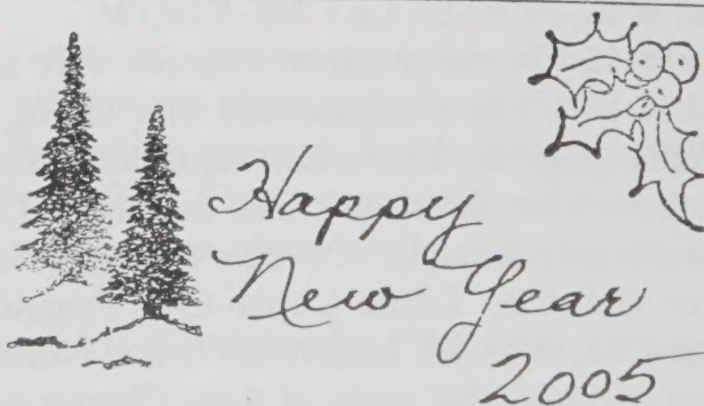 Happy
New Year
2005